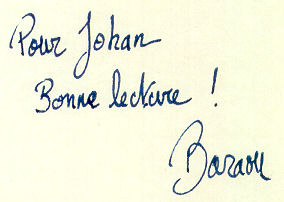 Pour Johan
Bonne lecture !
Baraou